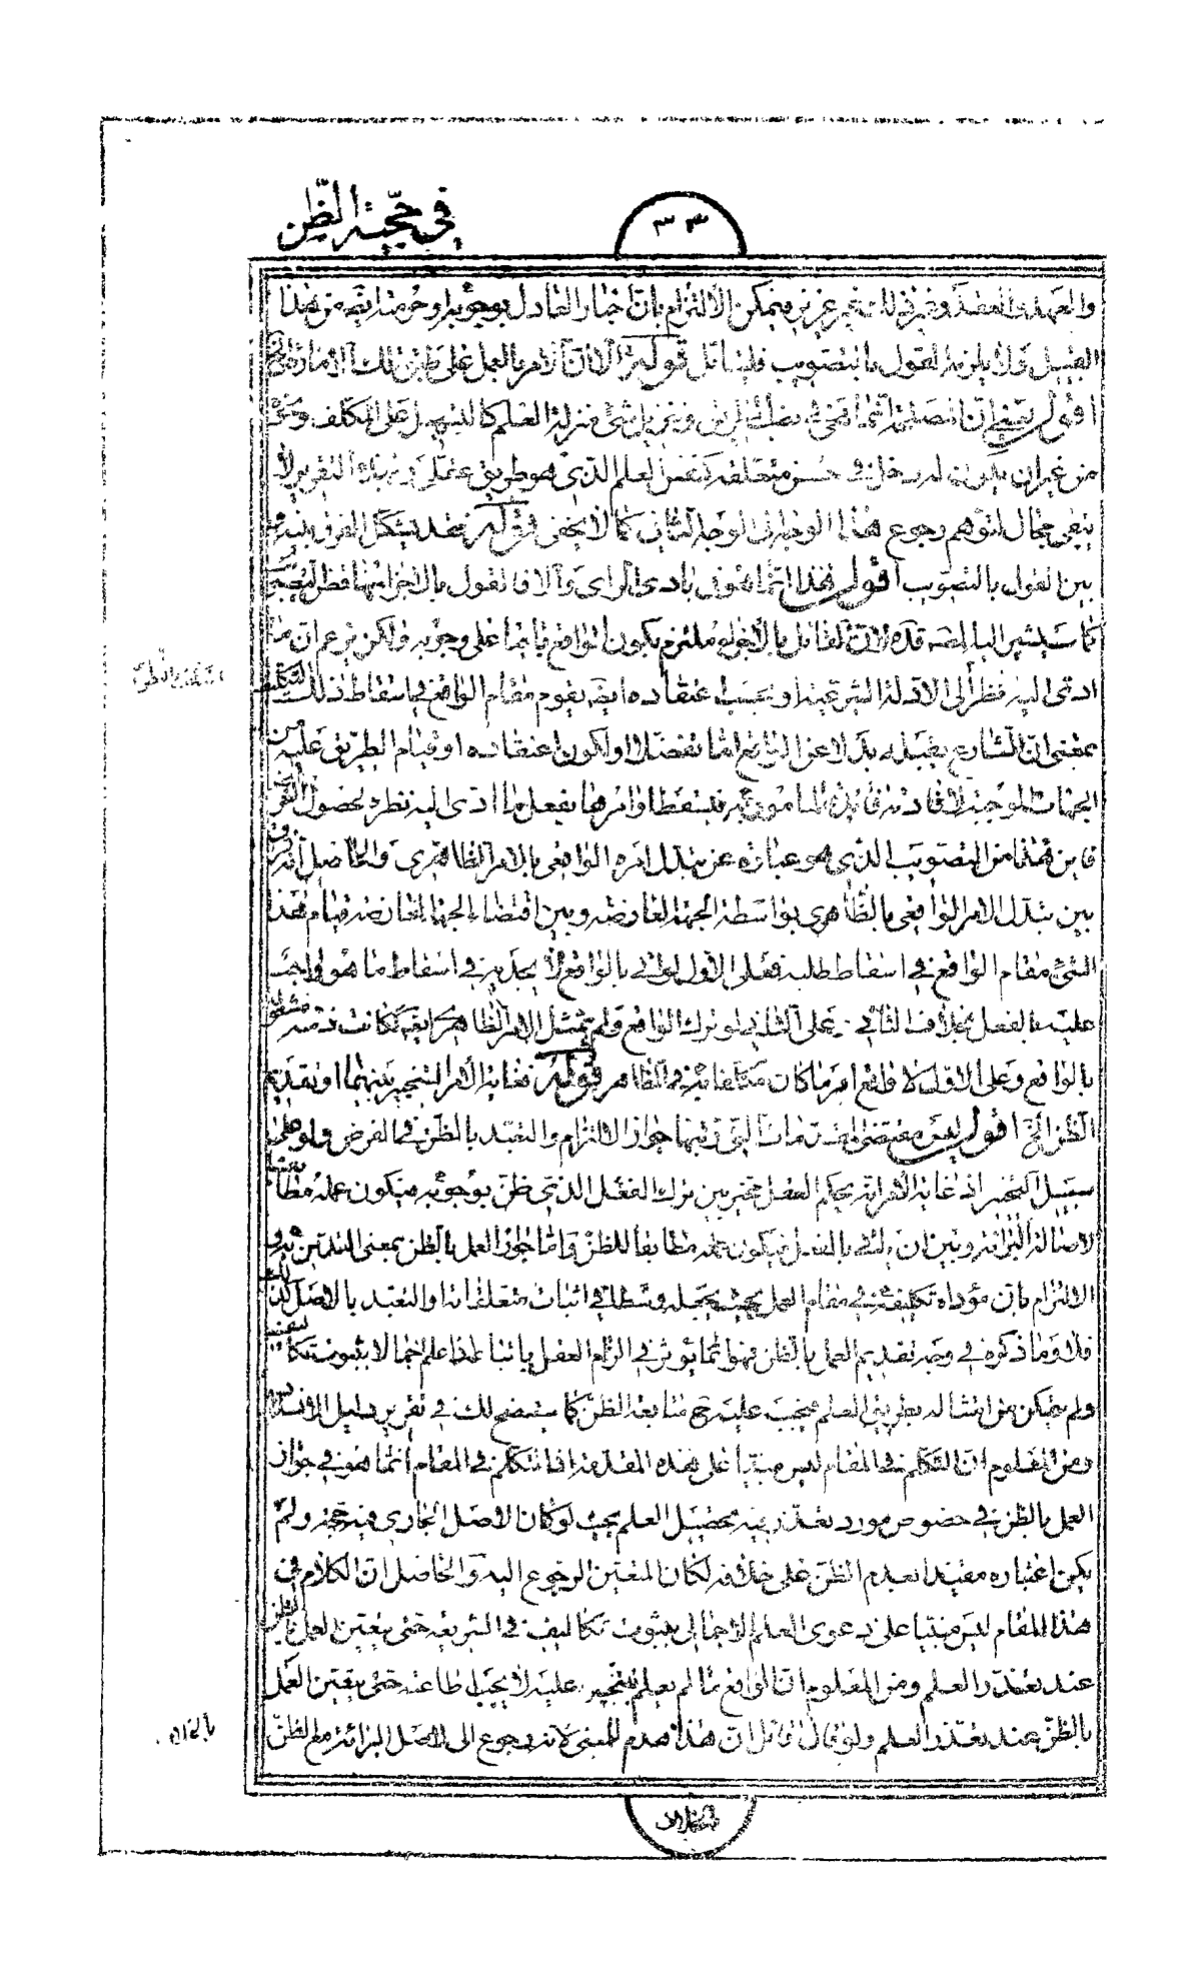 في حجّية الظّن
٣٣
والعهد والعقد وغير ذلك غير عزيز فيمكن الالتزام بانّ اخبار العادل بوجوبه او حرمته ايضا من هذا
القبيل ولا يلزمه القول بالتصويب فليتأمّل قوله الّا انّ الامر بالعمل على طبق تلك الامارة الخ
اقول يعني انّ المصلحة انّما هي في نصب الطريق وتنزيل شئ منزلة العلم كالتسهيل على المكلف ونحوه
من غير ان يكون له دخل في حسن متعلقه كنفس العلم الذي هو طريق عقلي وبهذا التقرير لا
يبقى مجال لتوهم رجوع هذا الوجه الى الوجه الثاني كما لا يخفى قوله فقد يشكل الفرق بينه و
بين القول بالتصويب اقول هذا انّما هو في بادى الراى والا فالقول بالاجزاء
كما سيشير اليه المصنف قده لانّ القائل بالاجزاء ملتزم بكون الواقع باقيا على وجوبه ولكن يزعم انّ ما
ادى اليه نظرا الى الادلة الشرعية او بحسب اعتقاده ايضا يقوم مقام الواقع في اسقاط ذلك التكليف
بمعنى انّ الشارع يقبله بدلا عن الواقع امّا تفضلا او لكون اعتقاده او قيام الطريق عليه من
الجهات الموجبة لافادته فائدة المأمور به فيسقط اوامرها بفعل ما ادى اليه نظره لحصول الغرض
فاين هذا من التصويب الذي هو عبارة عن تبدل امره الواقعي بالامر الظاهري والحاصل انّه فرق
بين تبدل الامر الواقعي بالظاهري بواسطة الجهة العارضة وبين اقتضاء الجهة العارضة قيام هذا
الشئ مقام الواقع في اسقاط طلبه فعلى الاول لو اتى بالواقع لا يجديه في اسقاط ما هو الواجب
عليه بالفعل بخلاف الثاني وعلى الثاني لو ترك الواقع ولم يمتثل الامر الظاهري ايضا لكانت ذمته مشغولة
بالواقع وعلى الاول لا واقع امر ما كان مكلفا به في الظاهر قوله فغاية الامر التخيير بينهما او تقديم
الظن الخ اقول ليس مقتضى المقدمات التي رتبها جواز الالتزام والتعبد بالظن في الفرض ولو على
سبيل التخيير اذ غاية الامر انه بحكم العقل مخير بين ترك الفعل الذي ظن بوجوبه فيكون عمله مطابقا
لاصالة البرائة وبين ان يأتي بالفعل فيكون عمله مطابقا للظن وامّا جواز العمل بالظن بمعنى التدين به و
الالتزام بان مؤداه تكليفه في مقام العمل بحيث يجعله وسطا في اثبات متعلقاته او التعبد بالاصل كذلك
فلا وما ذكره في وجه تقديم العمل بالظن فهو انّما يؤثر في الزام العقل باتباعه اذا علم اجمالا بثبوت تكاليف
ولم يتمكن من امتثاله بطريق العلم فيجب عليه ح متابعة الظن كما سيتضح لك في تقرير دليل الانسداد
ومن المعلوم انّ التكلم في المقام ليس مبتنيا على هذه المقدمة اذ التكلم في المقام انّما هو في جواز
العمل بالظن في خصوص مورد تعذر فيه تحصيل العلم بحيث لو كان الاصل الجاري فيه حجة ولم
يكن اعتباره مقيدا بعدم الظن على خلافه لكان المتعين الرجوع اليه والحاصل انّ الكلام في
هذا المقام ليس مبتنيا على دعوى العلم الاجمالي بثبوت تكاليف في الشريعة حتى يتعين العمل بالظن
عند تعذر العلم ومن المعلوم انّ الواقع ما لم يعلم بتنجيزه عليه لا يجب اطاعته حتى يتعين العمل
بالظن عند تعذر العلم ولو قال قائل انّ هذا هدم للمبنى لانه رجوع الى اصل البرائة مع الظن
بالخلاف